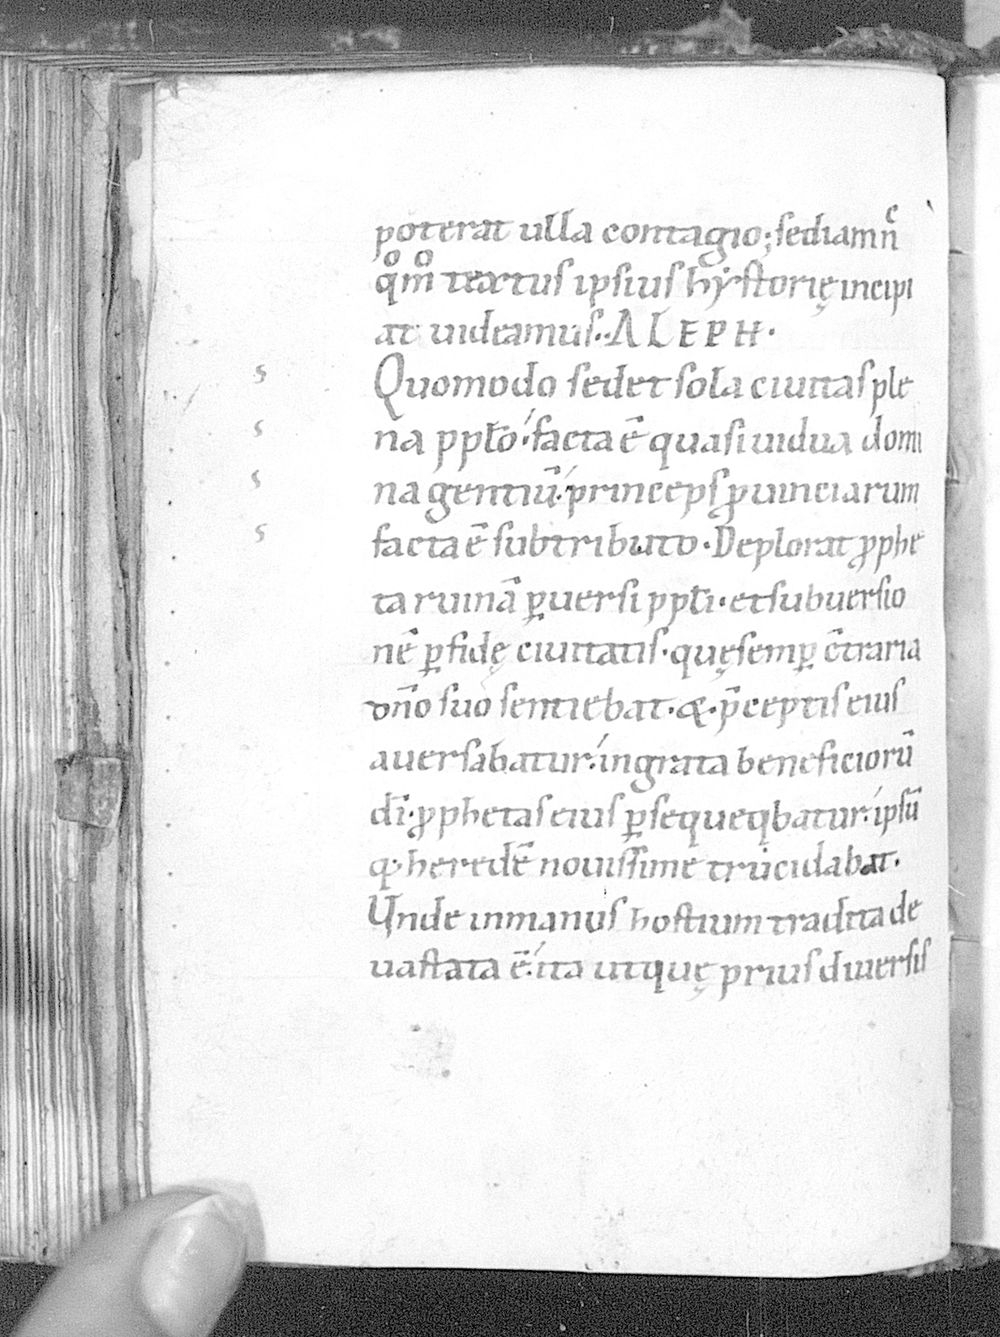 poterat ulla contagio; sed iam nc̄
qͦmͦ textus ipsius hẏstorię incipi
at uideamus·. ALEPH·
Quomodo sedet sola ciuitas ple
s na pplo̅·́ facta ē quasi uidua domi
s na gentiū·́ princeps ꝓuinciarum
s facta ē sub tributo· Deplorat ꝓphe
s ta ruinā ꝑuersi ppl̅i· et subuersio
nē ꝑfidę ciuitatis· quę semꝑ c̄traria
dn̄o suo sentiebat· &· p̄ceptis eius
auersabatur·́ ingrata beneficiorū
dī· ꝓphetas eius ꝑsequeqbatur·́ ipsū
q· heredē nouissime trucidabat·
Unde in manus hostium tradita de
uastata ē·́ ita ut quę prius diuersis